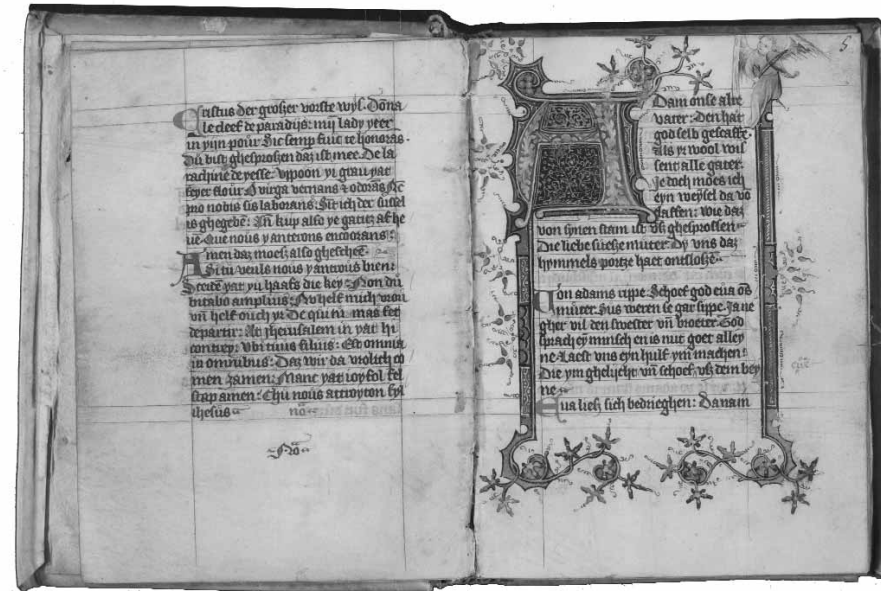 Cristus der groszer vorste wyſ. Dōna
le cleef de paradijs: mij lady yeer
in yijn pouir. Sic semꝑ fuit te honoras.
Du bist ghesproszen daz ist mee. De la
rachine de yesse. Vppoon yi grau yat
feyer flour. O virga vernans ⁊ odorās
pro nobis sis laborans. ich der
is ghegebē: An kup also ye gatitz af he
ue. Que nous y antrons encorans:
Amen daz moesz also ghescheē.
Si tu veuls nous yantrous bien:
Scidē yat yu haafs die key: Non du
bitabo amplius: No helf mich vrou
vn̄ helf ouch yr. De qui tu mas fet
departir: At Jherusalem in yat hi
contrey: Vbi tuus filius: Est omnia
in omnibus: Daz wir da vrolich co
men zamen: Manc yat ioy fol fel
scap amen: Ehu nous attroyton
ihesus nō
Adam onse alte
vater: Den hat
god selb gescaffē.
Als yr wool wis
sent alle gater.
Je doch moes ich
eyn weysel da vō
claffen: wie daz
von sijnen stam ist vsz ghesprossen
Die liebe suesze muter: Dy vns daz
hymmels portze haet ontslosze
Von adams rippe. Schoef god eua ōs
muter. Sus weren se gar sippe. Ja ne
gher vil den swester vn̄ broeter. God
sprach ey minsch en is nut goet alley
ne. Laest vns eyn hulf ym machen:
Die ym ghelijche vn̄ schoef. vsz dem bey
ne.
Eua liesz sich bedrieghen: Da nam
5